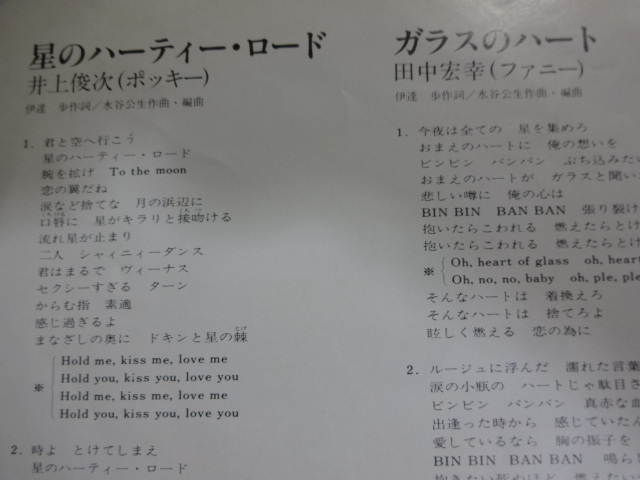 星のハーティー・ロード
井上俊次(ポッキー)
伊達 歩作詞/水谷公生作曲・編曲
1. 君と空へ行こう
星のハーティー・ロード
腕を拡げ To the moon
恋の翼だね
涙など捨てな 月の浜辺に
口唇に 星がキラリと接吻ける
流れ星が止まり
二人 シャイニィーダンス
君はまるで ヴィーナス
セクシーすぎる ターン
からむ指 素適
感じ過ぎるよ
まなざしの奥に ドキンと星の棘
※
Hold me, kiss me, love me
Hold you, kiss you, love you
Hold me, kiss me, love me
Hold you, kiss you, love you
2. 時よ とけてしまえ
星のハーティー・ロード
ガラスのハート
田中宏幸(ファニー)
伊達 歩作詞/水谷公生作曲・編曲
1. 今夜は全ての 星を集めろ
おまえのハートに 俺の想いを
ビンビン バンバン ぶち込みたい
おまえのハートが ガラスと聞い
悲しい噂に 俺の心は
BIN BIN BAN BAN 張り裂け
抱いたらこわれる 燃えたらとけ
抱いたらこわれる 燃えたらとけ
※
Oh, heart of glass oh, heart
Oh, no, no, baby oh, ple, ple
そんなハートは 着換えろ
そんなハートは 捨てろよ
眩しく燃える 恋の為に
2. ルージュに浮んだ 濡れた言葉
涙の小瓶の ハートじゃ駄目さ
ビンビン バンバン 真赤な血
出逢った時から 感じていたん
愛しているなら 胸の振子を
BIN BIN BAN BAN 鳴らし